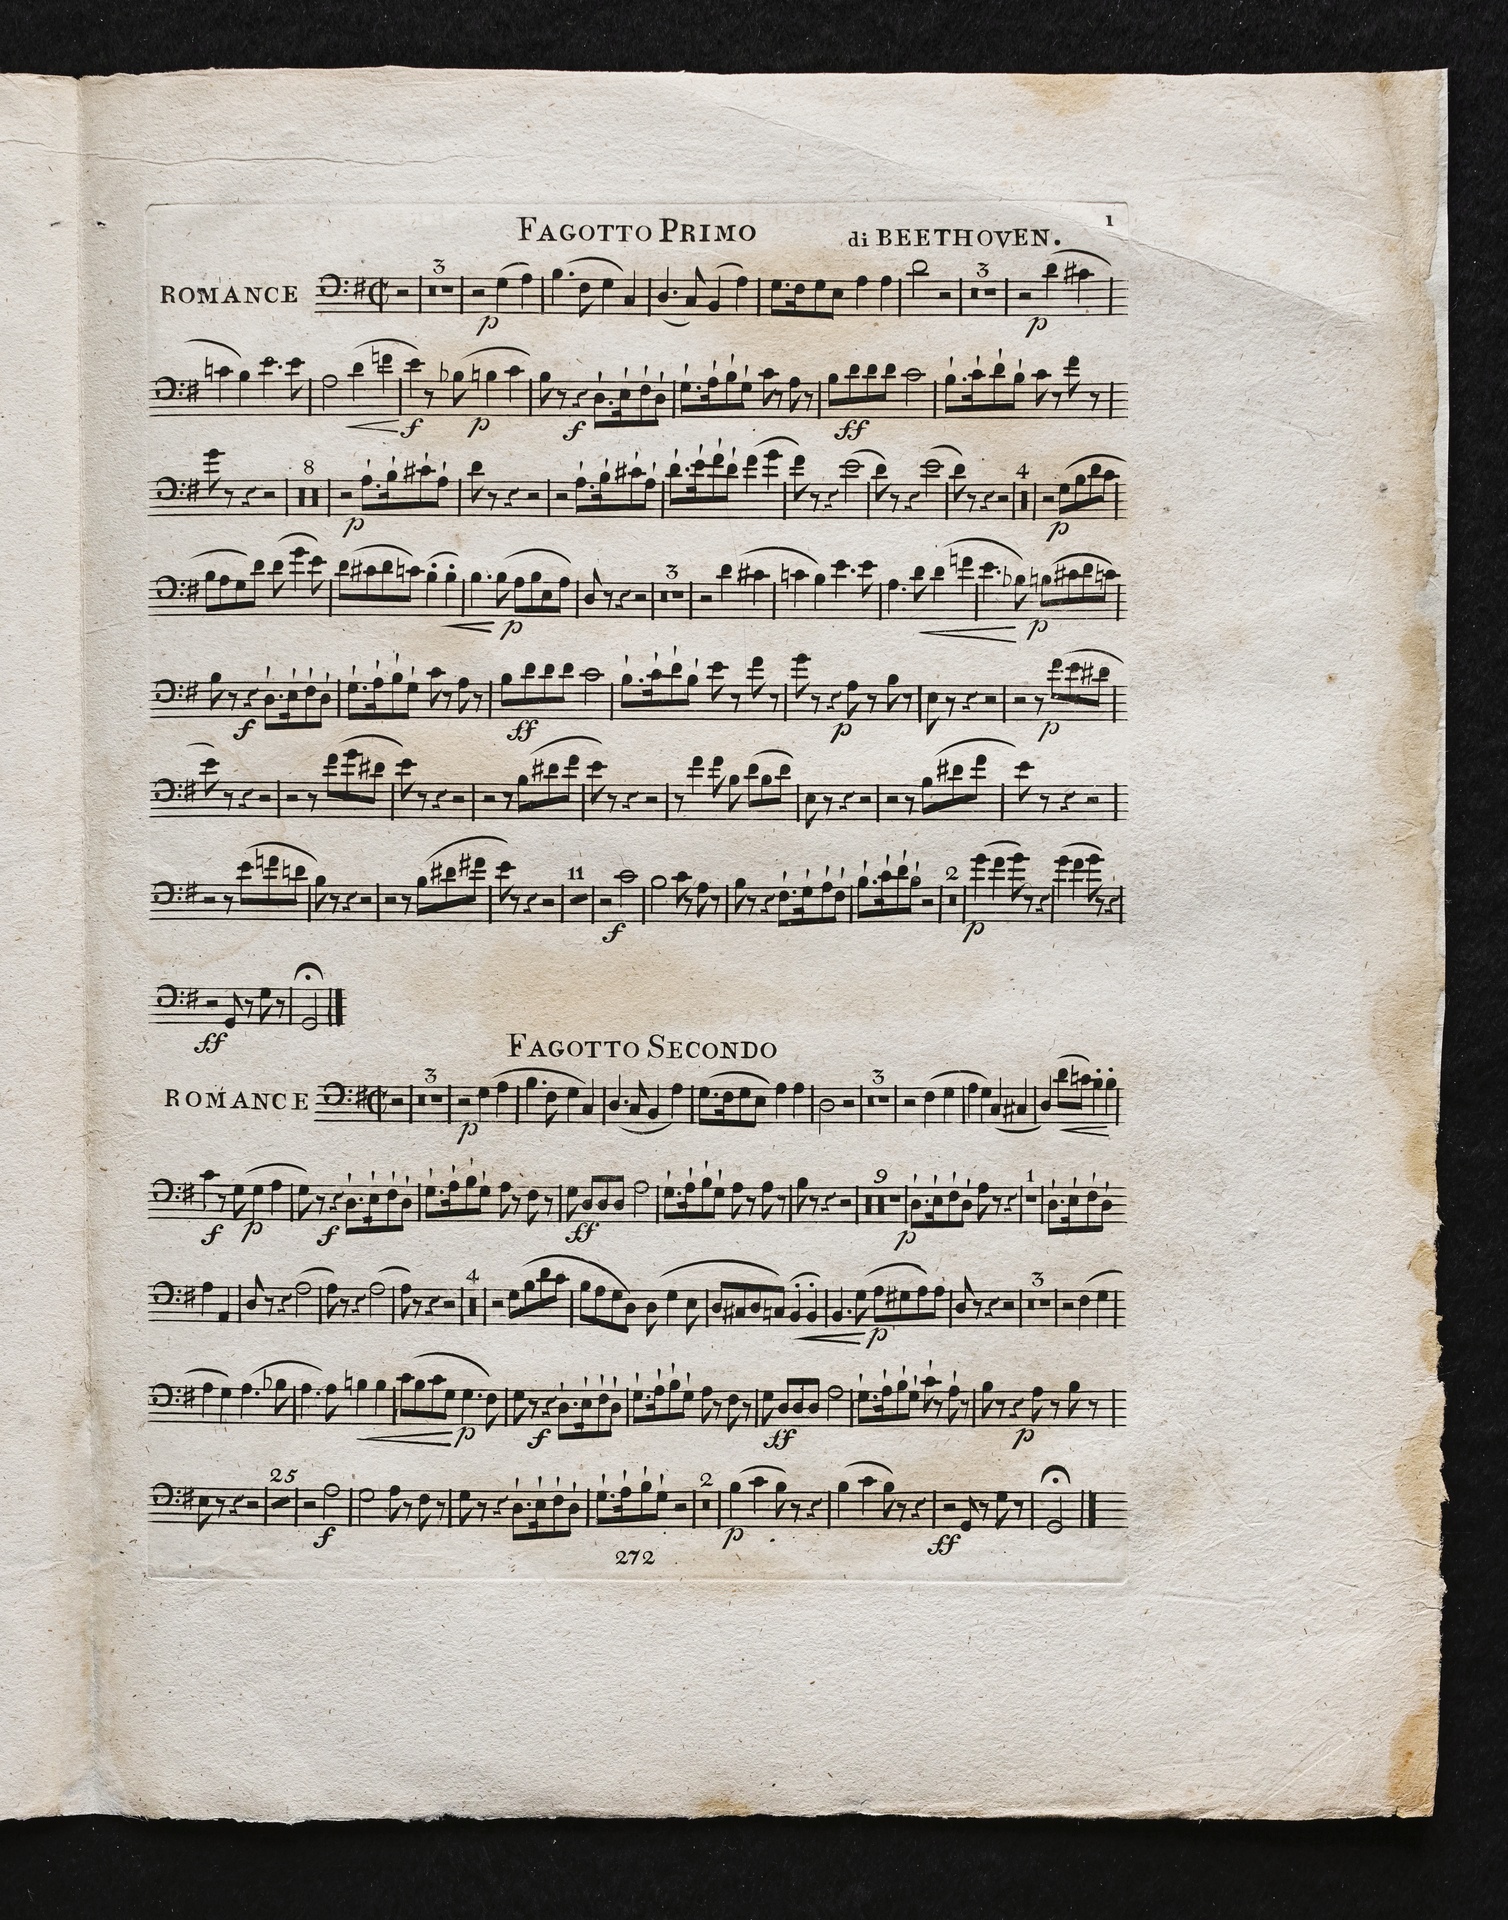 FAGOTTO PRIMO di BEETHOVEN. 1
ROMANCE 3 3
p p
f p f ff
8 4
p p
3
p p
f ff p p
11 2
f p
ff
FAGOTTO SECONDO
ROMANCE 3 3
p
9 1
f p f ff p
4 3
p
p f ff p
25 2
f p ff
272